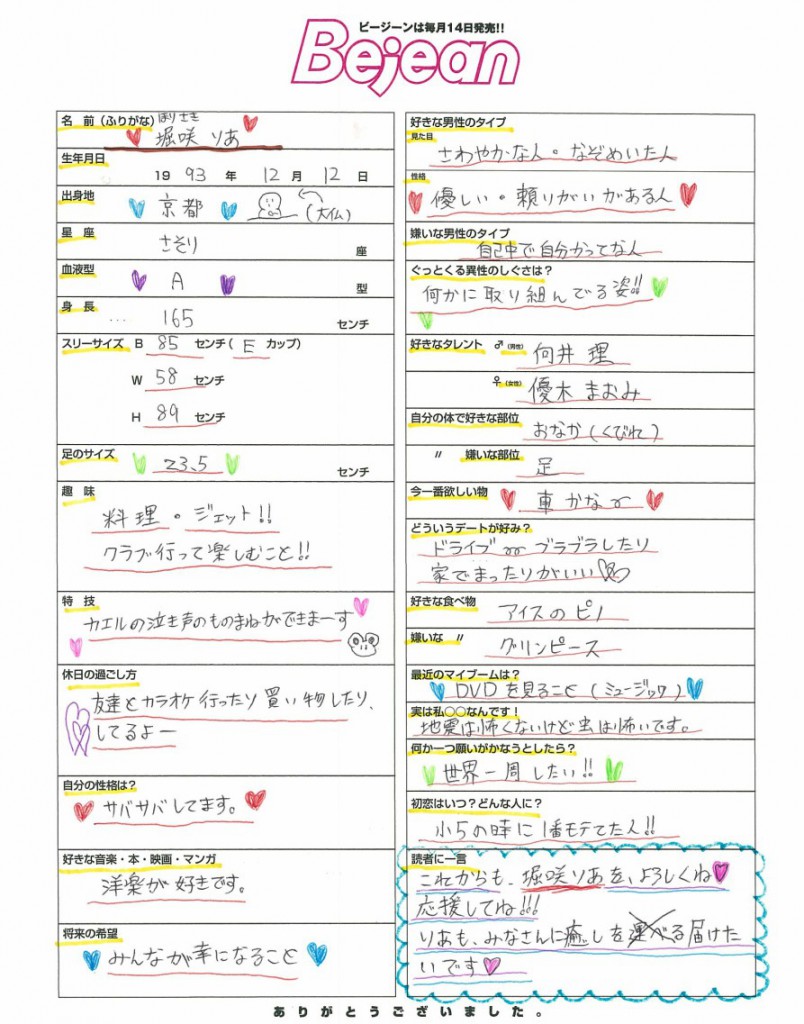 ビージーンは毎月14日発売!!
Bejean
名 前 (ふりがな) ほりさき
堀咲 りあ
生年月日
19 93 年 12 月 12 日
出身地
京都 (大仏)
星 座
さそり 座
血液型
A 型
身 長
… 165 センチ
スリーサイズ B 85 センチ( E カップ)
W 58 センチ
H 89 センチ
足のサイズ
23.5 センチ
趣 味
料理・ジェット!!
クラブ行って楽しむこと!!
特 技
カエルの泣き声のものまねができまーす
休日の過ごし方
友達とカラオケ行ったり買い物したり、
してるよー
自分の性格は?
サバサバしてます。
好きな音楽・本・映画・マンガ
洋楽が好きです。
将来の希望
みんなが幸になること
好きな男性のタイプ
見た目
さわやかな人・なぞめいた人
性格
優しい・頼りがいがある人
嫌いな男性のタイプ
自己中で自分かってな人
ぐっとくる異性のしぐさは?
何かに取り組んでる姿!!
好きなタレント ♂(男性) 向井 理
♀(女性) 優木まおみ
自分の体で好きな部位
おなか(くびれ)
〃 嫌いな部位
足
今一番欲しい物
車かな〜
どういうデートが好み?
ドライブ〜ブラブラしたり
家でまったりがいい
好きな食べ物
アイスのピノ
嫌いな 〃
グリンピース
最近のマイブームは?
DVDを見ること(ミュージック)
実は私○○なんです!
地震は怖くないけど虫は怖いです。
何か一つ願いがかなうとしたら?
世界一周したい!!
初恋はいつ?どんな人に?
小5の時に1番モテてた人!!
読者に一言
これからも、堀咲りあを、よろしくね
応援してね!!!
りあも、みなさんに癒しを運べる届けた
いです
ありがとうございました。